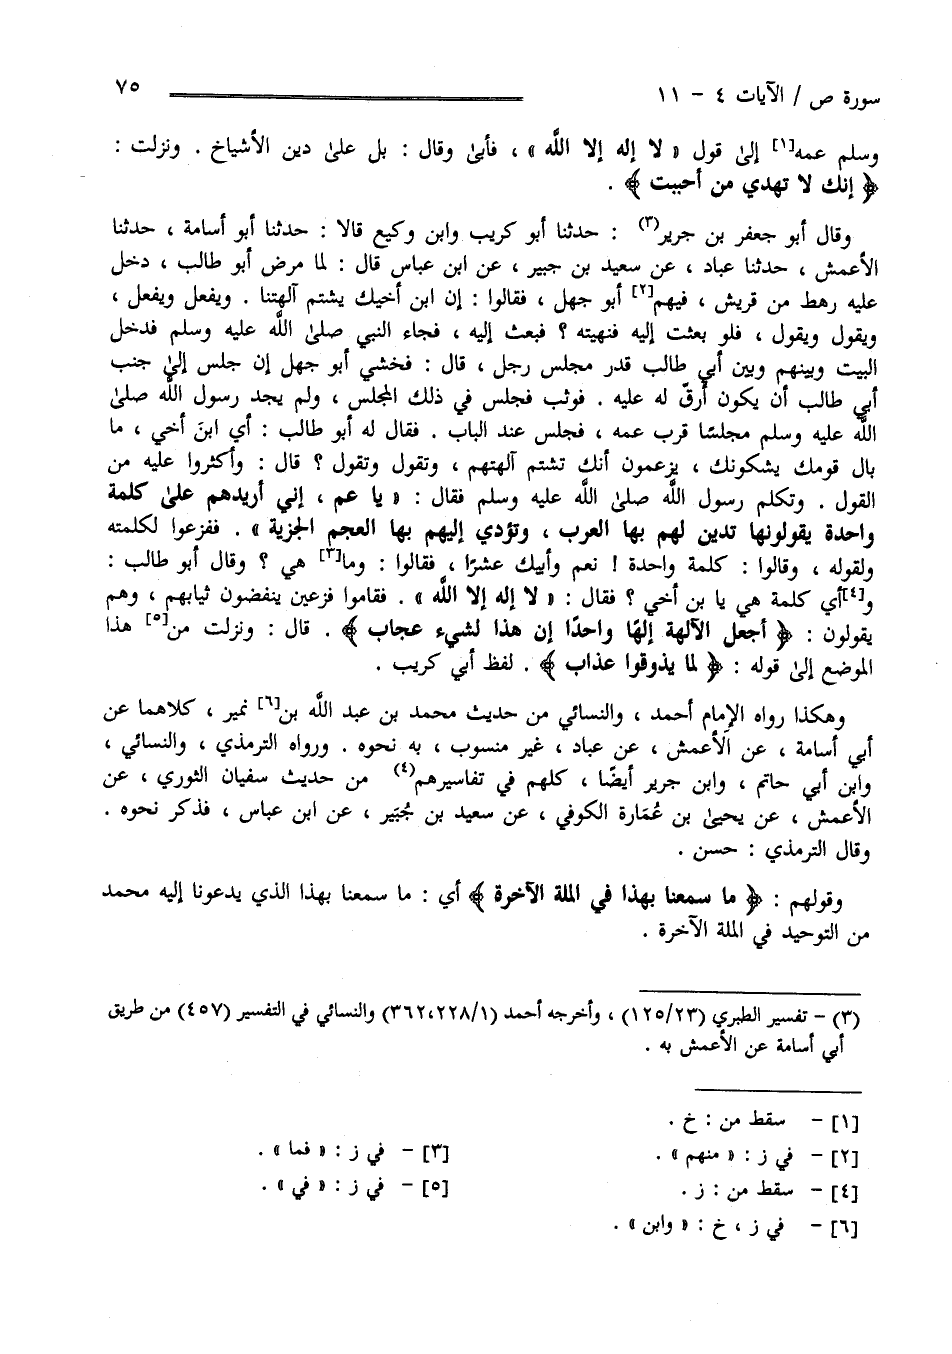 سورة ص / الآيات ٤ - ١١
٧٥
وسلم عمه[١] إلىٰ قول « لا إله إلا اللَّه » ، فأبىٰ وقال : بل علىٰ دين الأشياخ . ونزلت :
﴿ إنك لا تهدي من أحببت ﴾ .
وقال أبو جعفر بن جرير(٣) : حدثنا أبو كريب وابن وكيع قالا : حدثنا أبو أسامة ، حدثنا
الأعمش ، حدثنا عباد ، عن سعيد بن جبير ، عن ابن عباس قال : لما مرض أبو طالب ، دخل
عليه رهط من قريش ، فيهم[٢] أبو جهل ، فقالوا : إن ابن أخيك يشتم آلهتنا . ويفعل ويفعل ،
ويقول ويقول ، فلو بعثت إليه فنهيته ؟ فبعث إليه ، فجاء النبي صلىٰ اللَّه عليه وسلم فدخل
البيت وبينهم وبين أبي طالب قدر مجلس رجل ، قال : فخشي أبو جهل إن جلس إلىٰ جنب
أبي طالب أن يكون أرقّ له عليه . فوثب فجلس في ذلك المجلس ، ولم يجد رسول اللَّه صلىٰ
اللَّه عليه وسلم مجلسًا قرب عمه ، فجلس عند الباب . فقال له أبو طالب : أي ابنَ أخي ، ما
بال قومك يشكونك ، يزعمون أنك تشتم آلهتهم ، وتقول وتقول ؟ قال : وأكثروا عليه من
القول . وتكلم رسول اللَّه صلىٰ اللَّه عليه وسلم فقال : « يا عم ، إني أريدهم علىٰ كلمة
واحدة يقولونها تدين لهم بها العرب ، وتؤدي إليهم بها العجم الجزية » . ففزعوا لكلمته
ولقوله ، وقالوا : كلمة واحدة ! نعم وأبيك عشرًا ، فقالوا : وما[٣] هي ؟ وقال أبو طالب :
و[٤]أي كلمة هي يا بن أخي ؟ فقال : « لا إله إلا اللَّه » . فقاموا فزعين ينفضون ثيابهم ، وهم
يقولون : ﴿ أجعل الآلهة إلهًا واحدًا إن هذا لشيء عجاب ﴾ . قال : ونزلت من[٥] هذا
الموضع إلىٰ قوله : ﴿ لما يذوقوا عذاب ﴾ . لفظ أبي كريب .
وهكذا رواه الإمام أحمد ، والنسائي من حديث محمد بن عبد اللَّه بن[٦] نمير ، كلاهما عن
أبي أسامة ، عن الأعمش ، عن عباد ، غير منسوب ، به نحوه . ورواه الترمذي ، والنسائي ،
وابن أبي حاتم ، وابن جرير أيضًا ، كلهم في تفاسيرهم(٤) من حديث سفيان الثوري ، عن
الأعمش ، عن يحيىٰ بن عُمَارة الكوفي ، عن سعيد بن جُبَير ، عن ابن عباس ، فذكر نحوه .
وقال الترمذي : حسن .
وقولهم : ﴿ ما سمعنا بهذا في الملة الآخرة ﴾ أي : ما سمعنا بهذا الذي يدعونا إليه محمد
من التوحيد في الملة الآخرة .
(٣) - تفسير الطبري (١٢٥/٢٣) ، وأخرجه أحمد (٣٦٢،٢٢٨/١) والنسائي في التفسير (٤٥٧) من طريق
أبي أسامة عن الأعمش به .
[١] - سقط من : خ .
[٢] - في ز : « منهم » .
[٣] - في ز : « فما » .
[٤] - سقط من : ز .
[٥] - في ز : « في » .
[٦] - في ز ، خ : « وابن » .